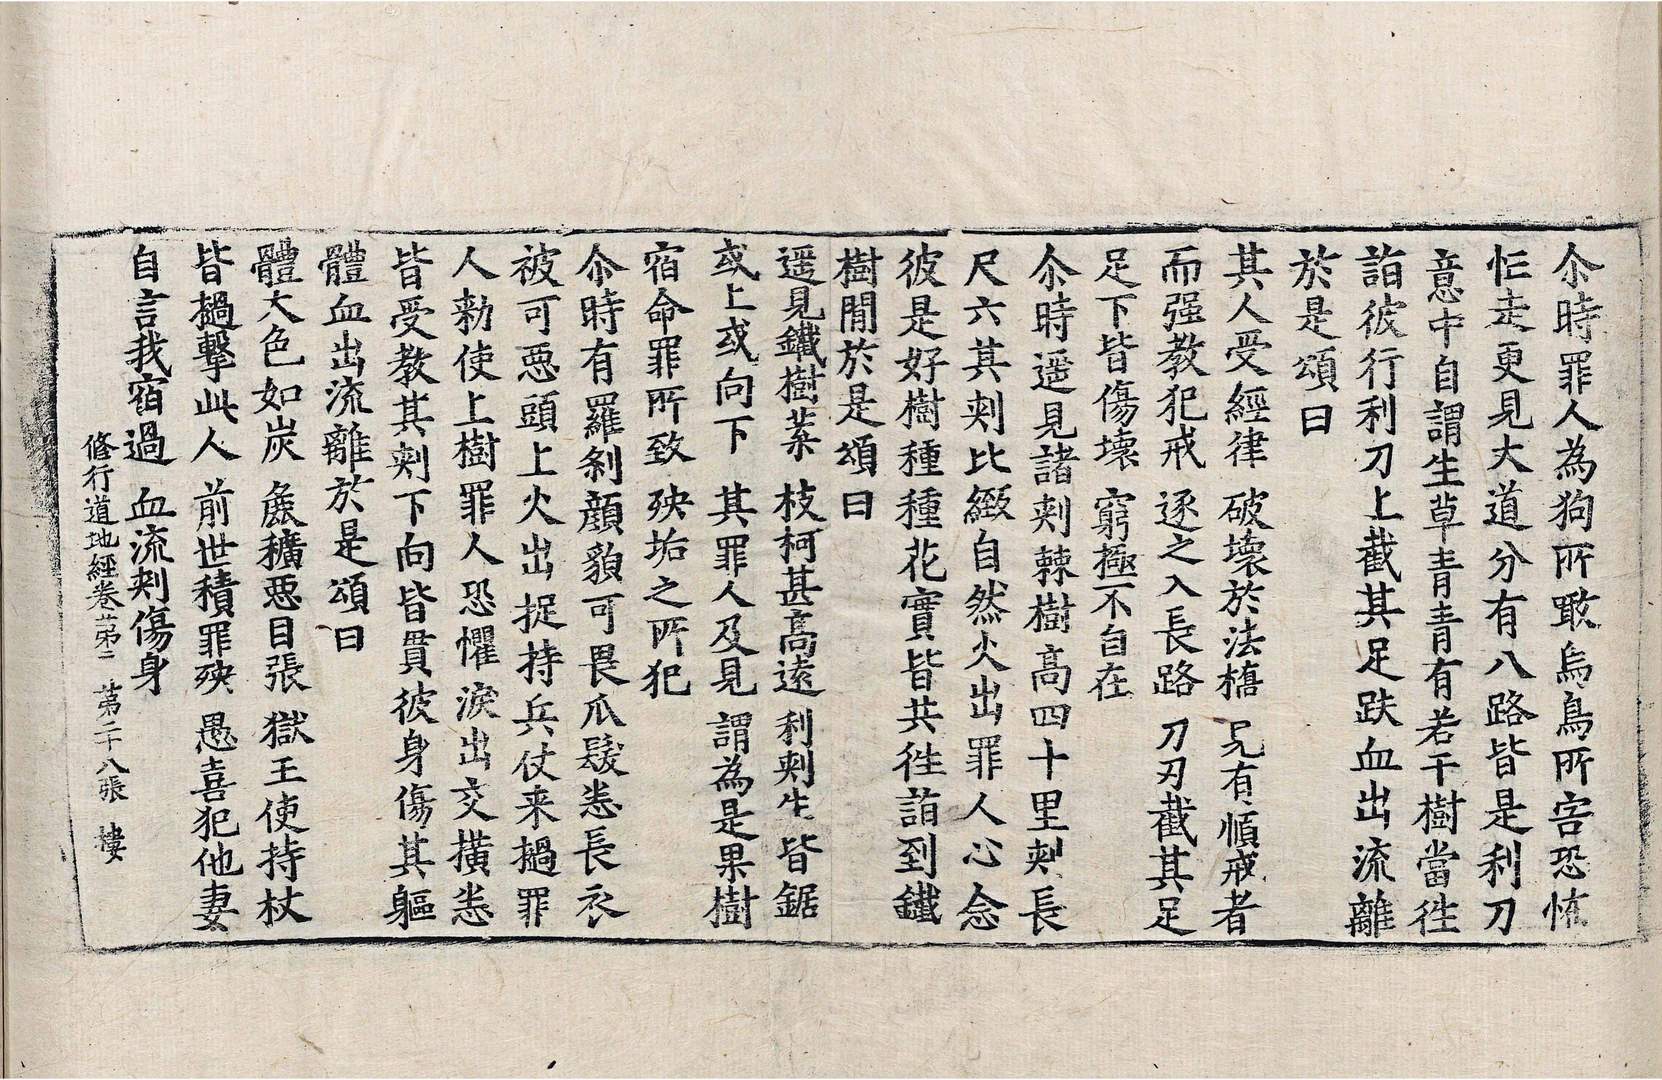 尒時罪人為狗所噉烏鳥所害恐怖
忙走更見大道分有八路皆是利刀
意中自謂生草青青有若干樹當徃
詣彼行利刀上截其足跌血出流離
於是頌曰
其人受經律 破壞於法橋 見有順戒者
而强教犯戒 逐之入長路 刀刃截其足
足下皆傷壞 窮極不自在
尒時遥見諸刾棘樹高四十里刾長
尺六其刾比緻自然火出罪人心念
彼是好樹種種花實皆共徃詣到鐵
樹閒於是頌曰
遥見鐵樹葉 枝柯甚高遠 利刾生皆鋸
或上或向下 其罪人及見 謂為是果樹
宿命罪所致 殃垢之所犯
尒時有羅刹顔貌可畏爪髮悉長衣
被可惡頭上火出捉持兵仗来撾罪
人勑使上樹罪人恐懼淚出交橫悉
皆受教其刾下向皆貫彼身傷其軀
體血出流離於是頌曰
體大色如炭 麁獷惡目張 獄王使持杖
皆撾擊此人 前世積罪殃 愚喜犯他妻
自言我宿過 血流刾傷身
修行道地經卷苐二 苐二十八張 樓